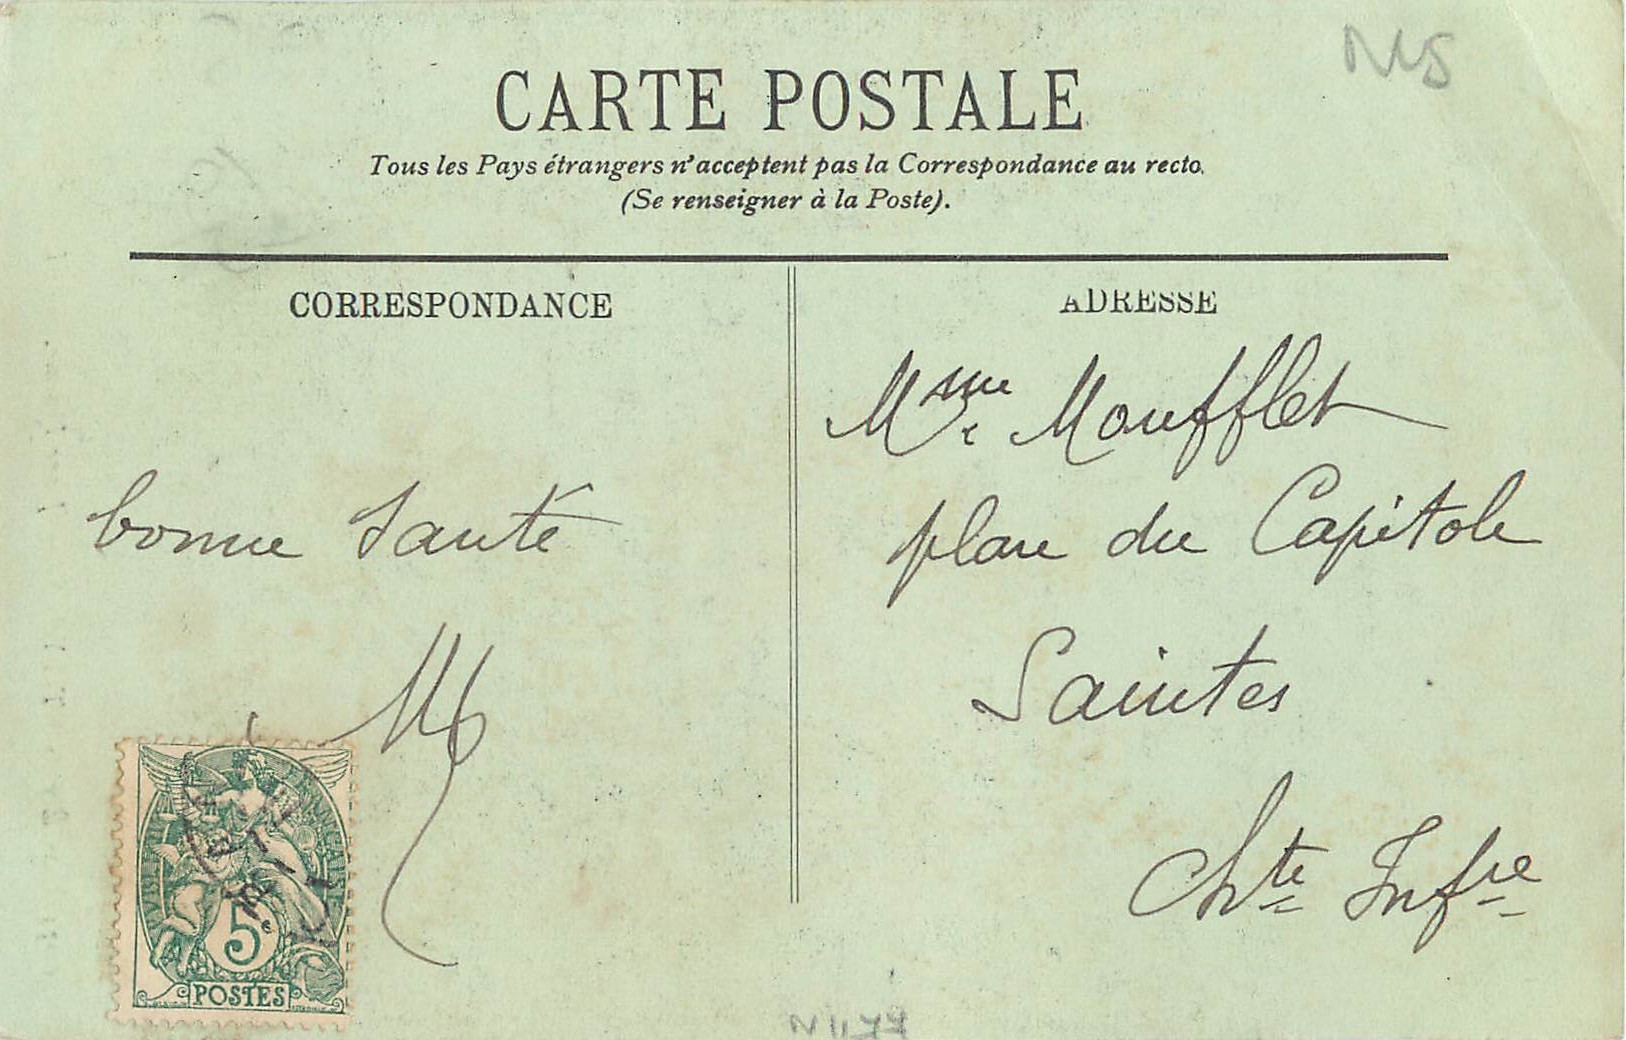 CARTE POSTALE
Tous les Pays étrangers n'acceptent pas la Correspondance au recto.
(Se renseigner à la Poste).
CORRESPONDANCE
ADRESSE
Mme Moufflet
place du Capitole
Saintes
Chte Infre
bonne santé
M
5c
POSTES
N1177